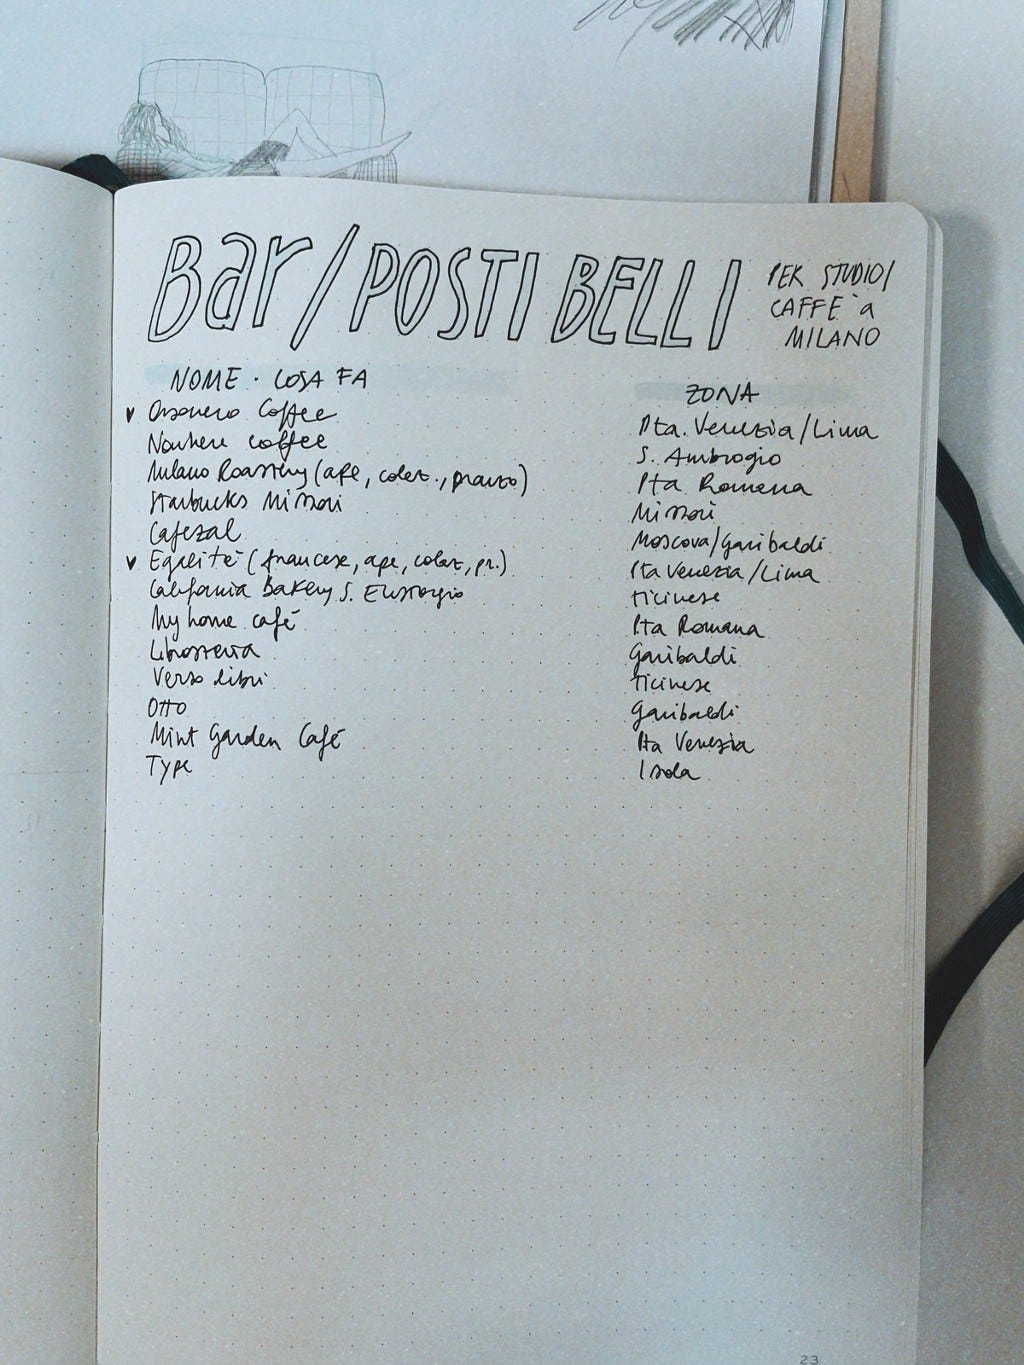 Bar / POSTI BELLI
PER STUDIO/
CAFFÈ a
MILANO
NOME · COSA FA ZONA
♥ Orsonero Coffee Pta. Venezia/Lima
Nowhere coffee S. Ambrogio
Milano Roastery (ape, colaz., pranzo) Pta Romana
Starbucks Missori Missori
Cafezal Moscova/Garibaldi
♥ Egalitè (francese, ape, colaz, pr.) Pta Venezia/Lima
California Bakery S. Eustorgio Ticinese
My home café Pta Romana
Libosteria Garibaldi
Verso libri Ticinese
Otto Garibaldi
Mint Garden Café Pta Venezia
Type Isola
23